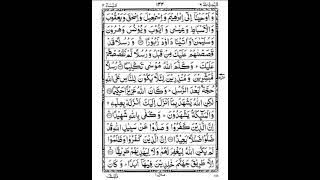 ١٣٣
وَاَوْحَيْنَاۤ اِلٰۤى اِبْرٰهِيْمَ وَاِسْمٰعِيْلَ وَاِسْحٰقَ وَيَعْقُوْبَ
وَالْاَسْبَاطِ وَعِيْسٰى وَاَيُّوْبَ وَيُوْنُسَ وَهٰرُوْنَ
وَسُلَيْمٰنَ وَاٰتَيْنَا دَاوٗدَ زَبُوْرًا وَرُسُلًا قَدْ
قَصَصْنٰهُمْ عَلَيْكَ مِنْ قَبْلُ وَرُسُلًا لَّمْ نَقْصُصْهُمْ
عَلَيْكَ وَكَلَّمَ اللّٰهُ مُوْسٰى تَكْلِيْمًا رُسُلًا
مُّبَشِّرِيْنَ وَمُنْذِرِيْنَ لِئَلَّا يَكُوْنَ لِلنَّاسِ عَلَى اللّٰهِ
حُجَّةٌ بَعْدَ الرُّسُلِ وَكَانَ اللّٰهُ عَزِيْزًا حَكِيْمًا
لٰكِنِ اللّٰهُ يَشْهَدُ بِمَاۤ اَنْزَلَ اِلَيْكَ اَنْزَلَهٗ بِعِلْمِهٖ
وَالْمَلٰٓئِكَةُ يَشْهَدُوْنَ وَكَفٰى بِاللّٰهِ شَهِيْدًا
اِنَّ الَّذِيْنَ كَفَرُوْا وَصَدُّوْا عَنْ سَبِيْلِ اللّٰهِ قَدْ
ضَلُّوْا ضَلٰلًاۢ بَعِيْدًا اِنَّ الَّذِيْنَ كَفَرُوْا وَظَلَمُوْا
لَمْ يَكُنِ اللّٰهُ لِيَغْفِرَ لَهُمْ وَلَا لِيَهْدِيَهُمْ طَرِيْقًا
اِلَّا طَرِيْقَ جَهَنَّمَ خٰلِدِيْنَ فِيْهَاۤ اَبَدًا وَكَانَ